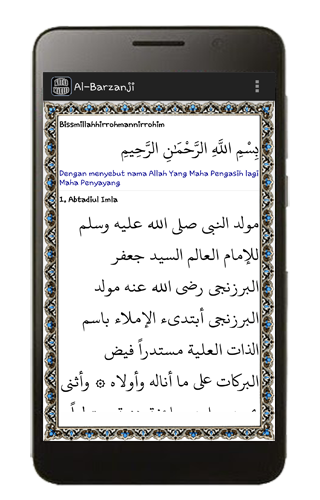 Al-Barzanji
Bissmillahhirrohmannirrohim
بِسْمِ اللَّهِ الرَّحْمَٰنِ الرَّحِيمِ
Dengan menyebut nama Allah Yang Maha Pengasih lagi
Maha Penyayang
1. Abtadiul Imla
مولد النبي صلى الله عليه وسلم
للإمام العالم السيد جعفر
البرزنجى رضى الله عنه مولد
البرزنجى أبتدىء الإملاء باسم
الذات العلية مستدراً فيض
البركات على ما أناله وأولاه ۞ وأثنى